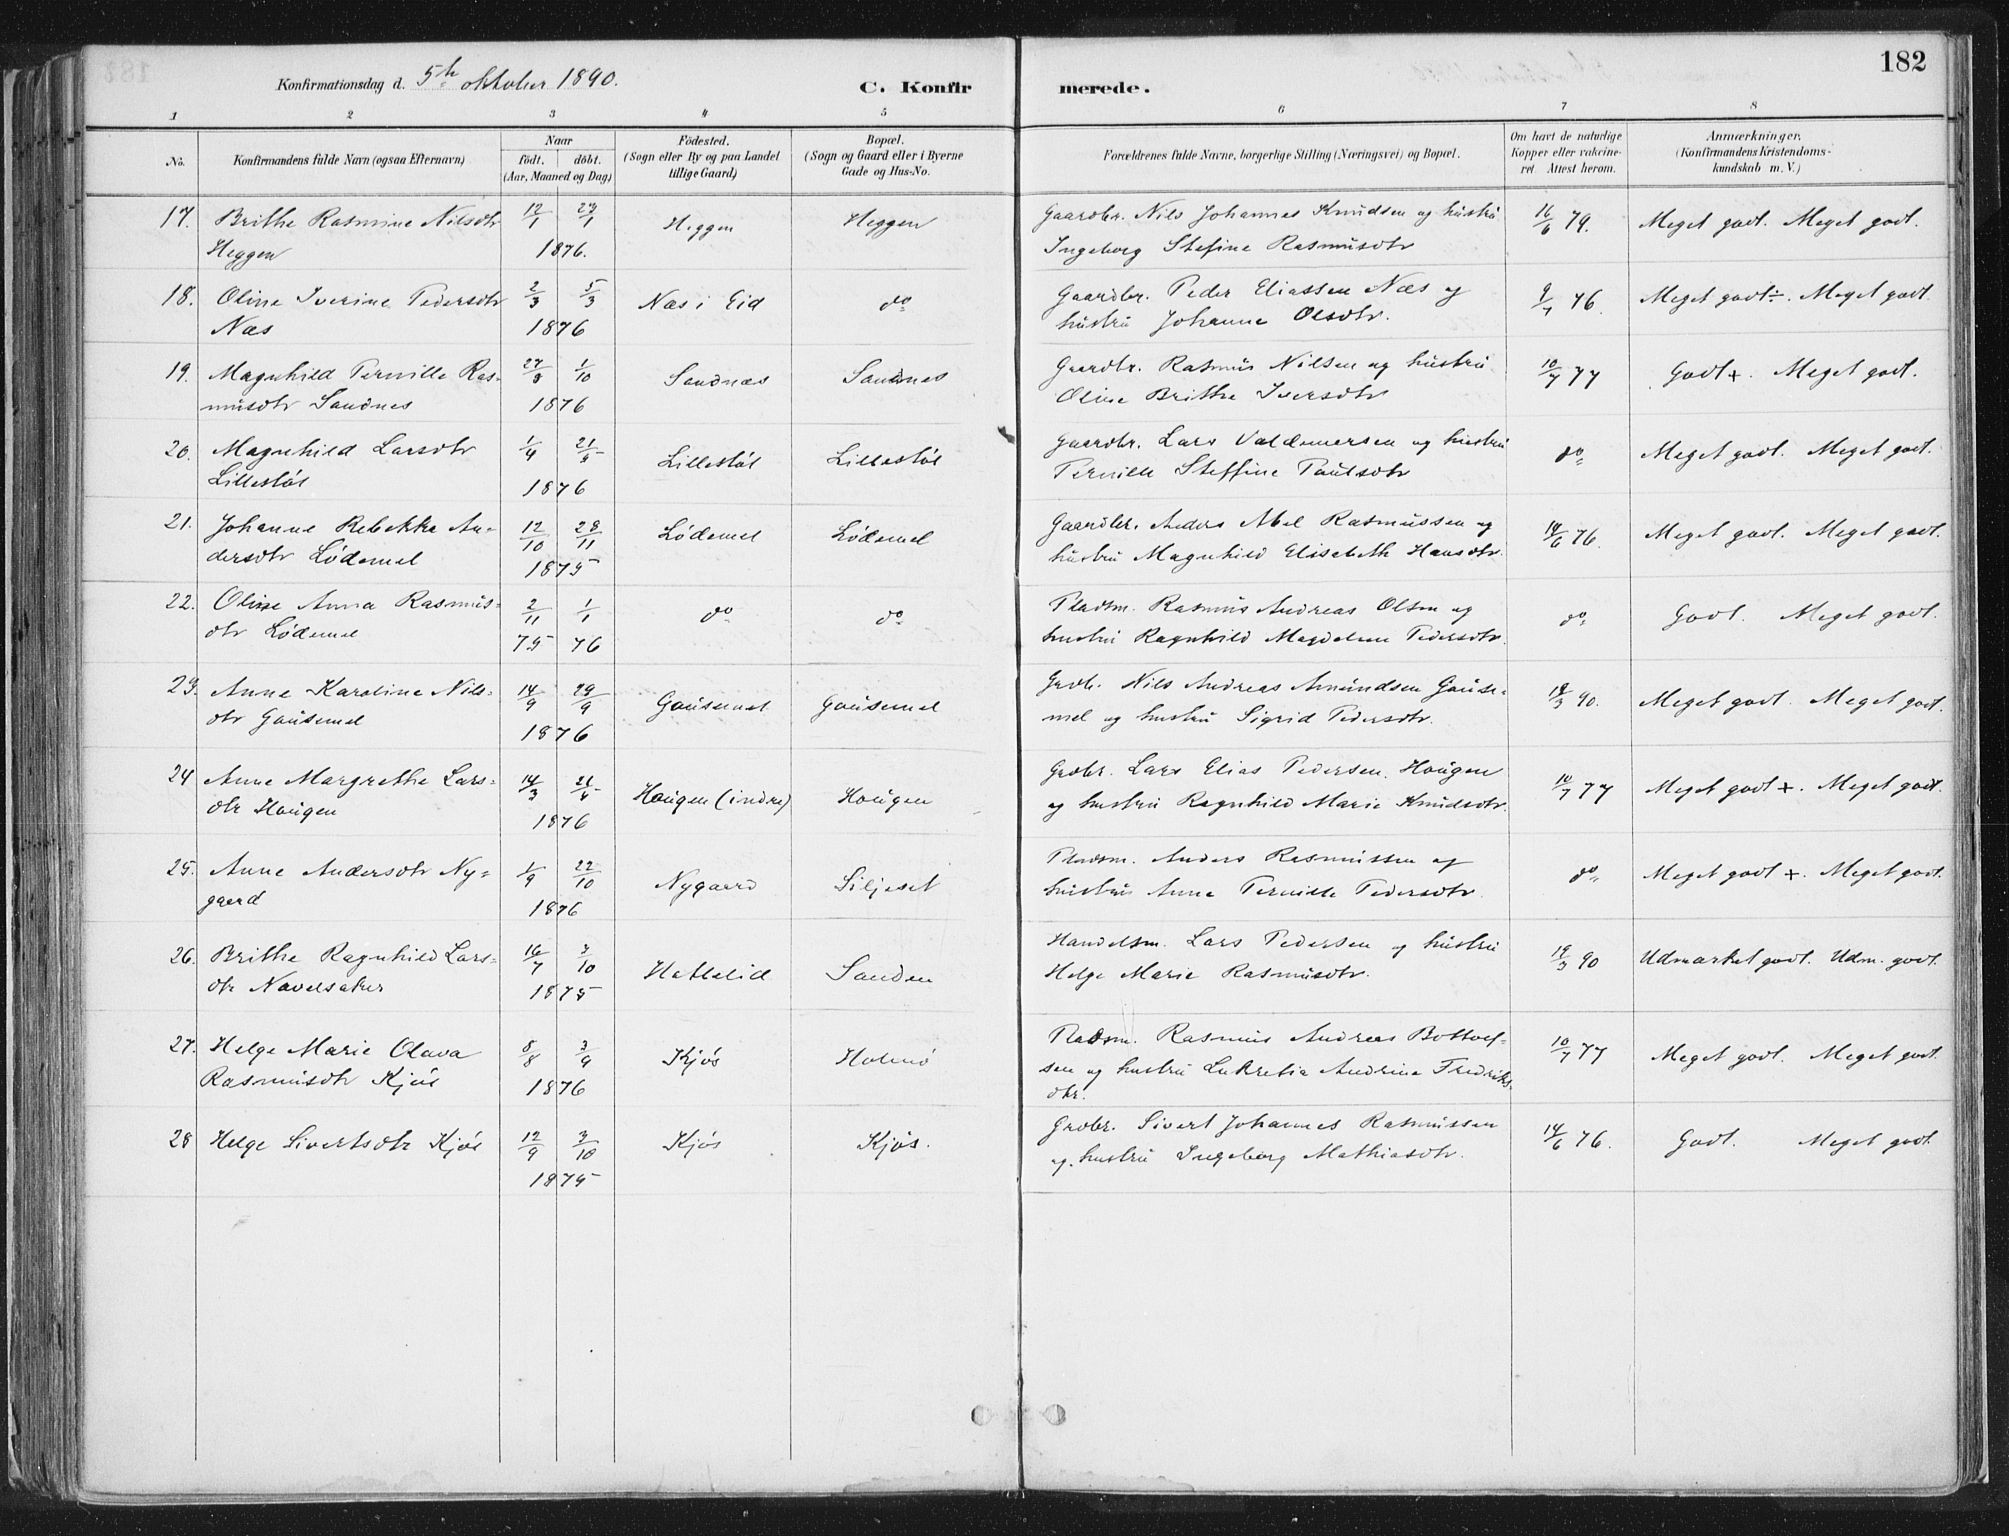 182
Konfirmationsdag d. 5te oktober 1890.
C. Konfirmerede.
1 2 3 4 5 6 7 8
No.
Konfirmandens fulde Navn (ogsaa Efternavn)
Naar
födt. döbt.
(Aar, Maaned og Dag)
Födested.
(Sogn eller By og paa Landet
tillige Gaard)
Bopæl.
(Sogn og Gaard eller i Byerne
Gade og Hus-No.
Forældrenes fulde Navne, borgerlige Stilling (Næringsvei) og Bopæl.
Om havt de naturlige
Kopper eller vakcine-
ret. Attest herom.
Anmærkninger.
(Konfirmandens Kristendoms-
kundskab m. V.)
17. Brithe Rasmine Nilsdtr 12/1 23/1 Heggen Heggen Gaardbr. Nils Johannes Knudsen og hustru 16/6 79. Meget godt. Meget godt.
Heggen 1876. Ingeborg Stefine Rasmusdtr
18. Oline Iverine Pedersdtr 2/3 5/3 Næs i Eid do Gaardbr. Peder Eliassen Næs og 9/7 76. Meget godt÷. Meget godt.
Næs 1876 hustru Johanne Olsdtr.
19. Magnhild Pernille Ras- 27/8 1/10 Sandnæs Sandnes Gaardbr. Rasmus Nilsen og hustru 10/7 77 Godt+. Meget godt.
musdtr Sandnes 1876 Oline Brithe Iversdtr
20. Magnhild Larsdtr 1/4 21/5 Lillestöl Lillestöl Gaardbr. Lars Valdemarsen og hustru do Meget godt. Meget godt.
Lillestöl 1876 Pernille Steffine Paulsdtr
21. Johanne Rebekka An- 12/10 28/11 Lödemel Lödemel Gaardbr. Anders Abel Rasmussen og 14/6 76. Meget godt. Meget godt.
dersdtr Lödemel 1875 hustru Magnhild Elisabeth Hansdtr.
22. Oline Anna Rasmus- 2/11 1/1 do do Pladsm. Rasmus Andreas Olsen og do Godt. Meget godt.
dtr Lödemel 75 76 hustru Ragnhild Magdalene Pedersdtr.
23. Anne Karoline Nils- 14/9 29/9 Gausemel Gausemel Grdb. Nils Andreas Amundsen Gause- 18/3 90. Meget godt. Meget godt.
dtr Gausemel 1876 mel og hustru Sigrid Pedersdtr.
24 Anne Margrethe Lars- 14/3 21/5 Hougen (indre) Hougen Grdbr. Lars Elias Pedersen Hougen 10/7 77 Meget godt +. Meget godt.
dtr Hougen 1876 og hustru Ragnhild Marie Knudsdtr.
25. Anne Andersdtr Ny- 1/9 22/10 Nygaard Siljeset Pladsm. Anders Rasmussen og do Meget godt +. Meget godt.
gaard 1876 hustru Anne Pernille Pedersdtr.
26. Brithe Ragnhild Lars- 16/7 3/10 Hattelid Sanden Handelsm. Lars Pedersen og hustru 19/3 90 Udmærket godt. Udm. godt.
dtr Navelsaker 1875 Helge Marie Rasmusdtr.
27. Helge Marie Olava 8/8 3/9 Kjös Holmö Pladsm. Rasmus Andreas Bottolf- 10/7 77 Meget godt. Meget godt.
Rasmusdtr Kjös 1876 sen og hustru Lukretia Andrine Fredriks-
dtr.
28 Helge Sivertsdtr Kjös 12/9 3/10 Kjös Kjös. Grdbr. Sivert Johannes Rasmussen 14/6 76. Godt. Meget godt.
1875 og hustru Ingeborg Mathiasdtr.